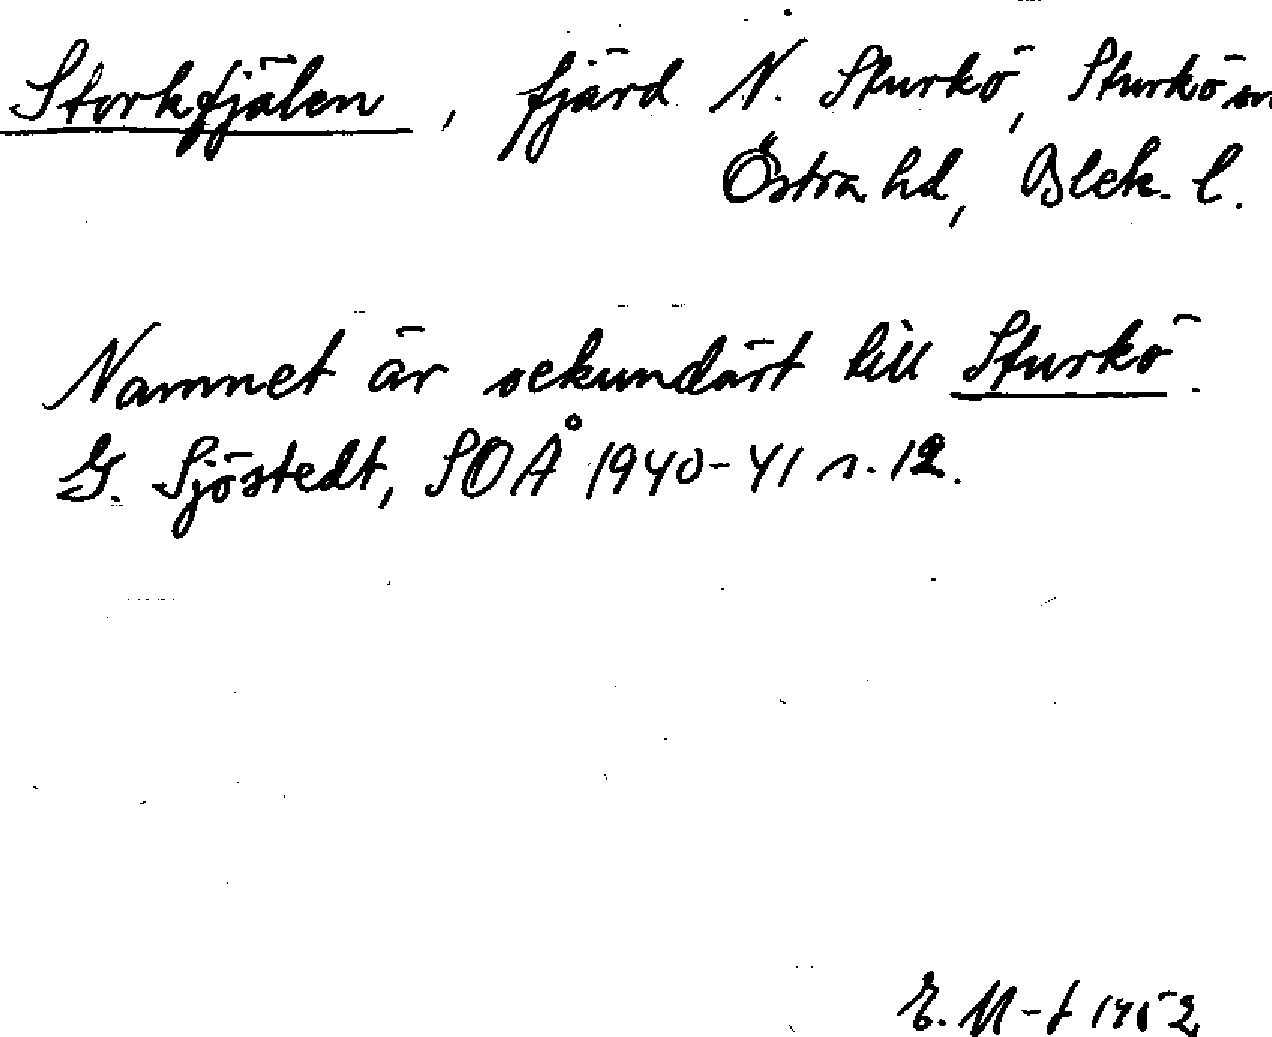 Storkfjälen, fjärd N. Sturkö, Sturkö sn
Östra hd, Blek. l.
Namnet är sekundärt till Sturkö.
G. Sjöstedt, SOÅ 1940-41 s. 12.
E. M-t 1952